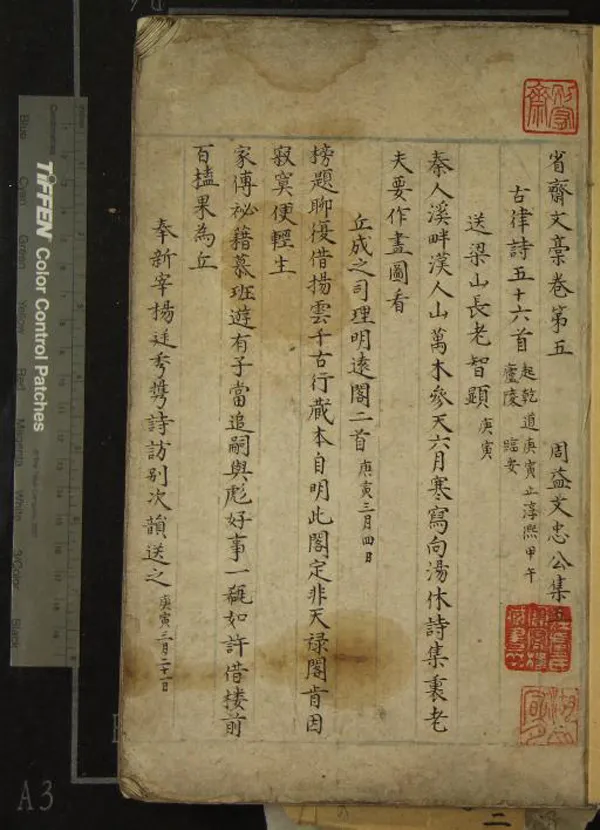 省齋文藁卷第五　周益文忠公集五
古律詩五十六首 起乾道庚寅止淳熙甲午
廬陵　臨安
送梁山長老智顕 庚寅
秦人溪畔漢人山萬木參天六月寒寫向湯休詩集裏老
夫要作畫圖看
丘成之司理明遠閣二首 庚寅三月四日
榜題聊復借揚雲千古行藏本自明此閣定非天禄閣肯因
寂寞便輕生
家傳祕籍慕班遊有子當追嗣與彪好事一瓻如許借樓前
百榼果為丘
奉新宰揚廷秀携詩訪别次韻送之 庚寅三月二十一日
TIFFEN Color Control Patches
Blue
Cyan
Green
Yellow
Red
Magenta
White
3/Color
Black
A3